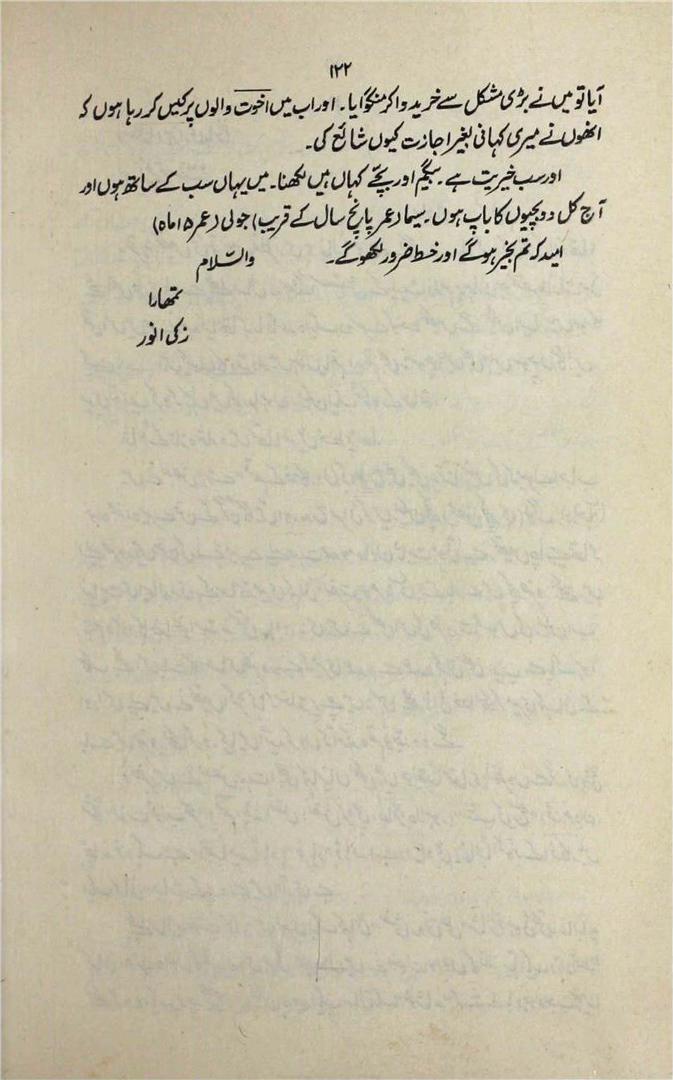 ۱۲۲
آیا تو میں نے بڑی مشکل سے خرید وا کر منگوایا۔ اور اب میں اخوت والوں پر کیس کر رہا ہوں کہ
انھوں نے میری کہانی بغیر اجازت کیوں شائع کی۔
اور سب خیریت ہے۔ بیگم اور بچّے کہاں ہیں لکھنا۔ میں یہاں سب کے ساتھ ہوں اور
آج کل دو بچیوں کا باپ ہوں۔ سیما (عمر پانچ سال کے قریب) جولی (عمر ۱۵ ماہ)
امید کہ تم بخیر ہوگے اور خط ضرور لکھوگے۔ والسّلام
تمھارا
زکی انور